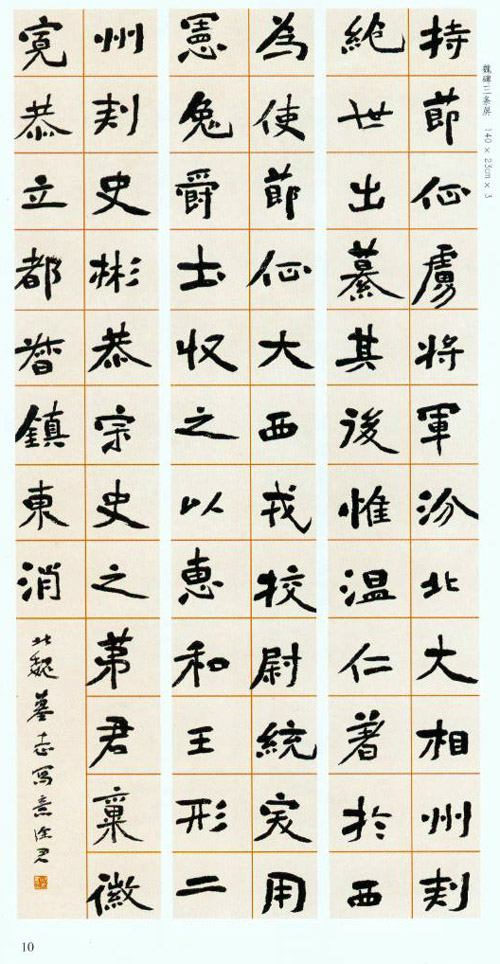 魏碑三条屏 140×23cm×3
持節征虜將軍汾北大相州刾
世出纂其後惟温仁著於西
為使節征大西戎挍尉統用
憲兔爵士収之以惠和王形二
州刾史彬恭宗史之苐君稟徽
寛恭立都督鎮東消
北魏墓志寫意
10